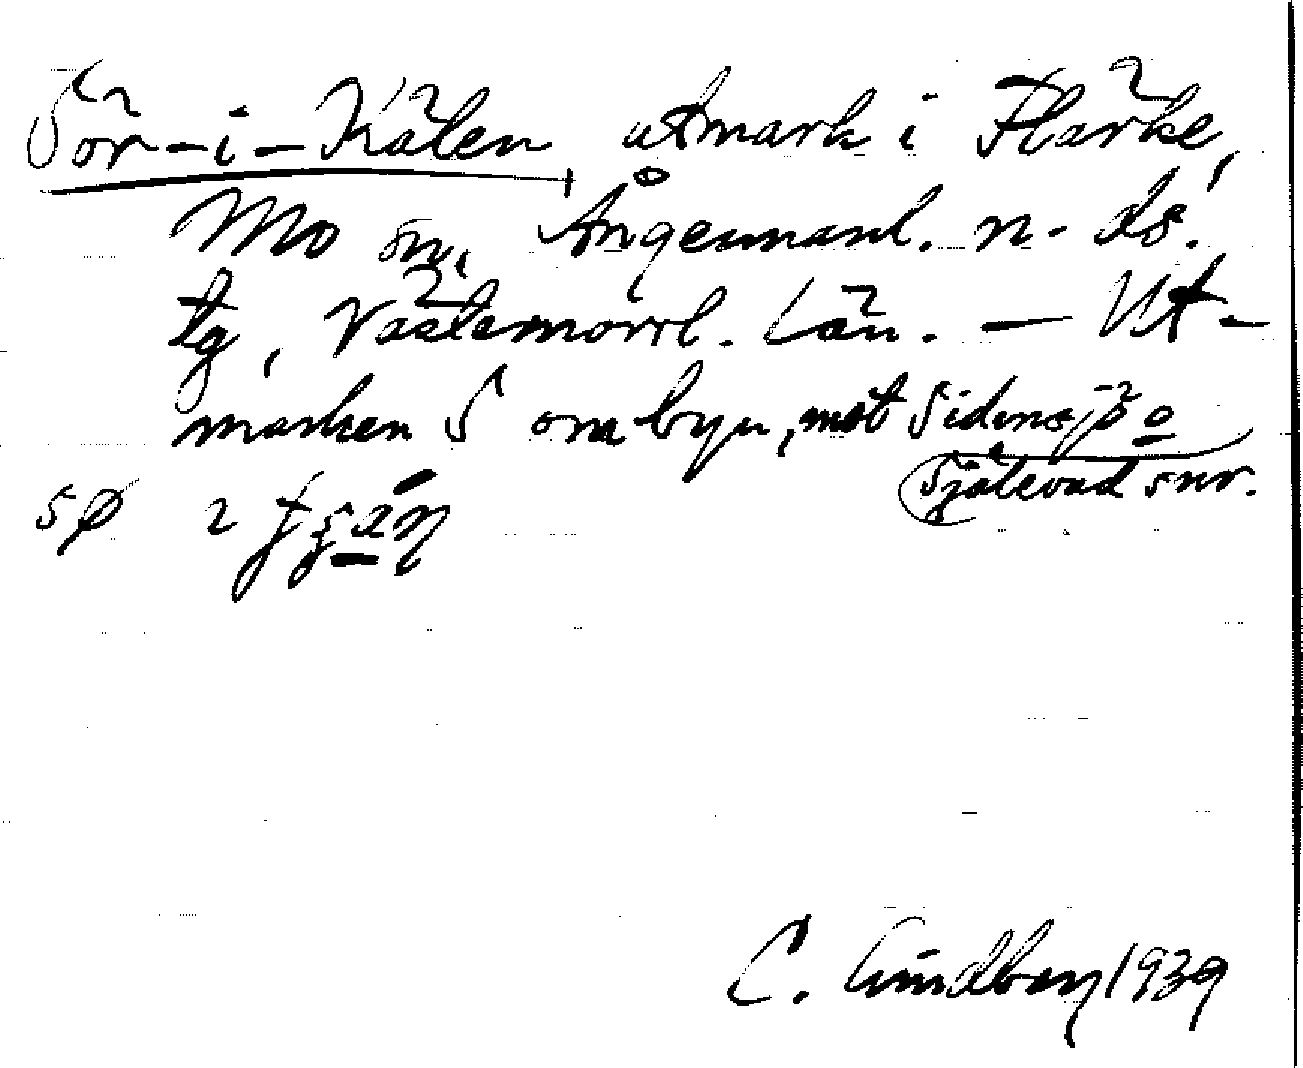 Sör-i-Kälen, utmark i Flärke,
Mo sn, Ångermanl. n. ds.
tg, Västernorrl. Län. — Ut-
marken S om byn, mot Sidensjö o
Själevad snr.
C. Lindberg 1939